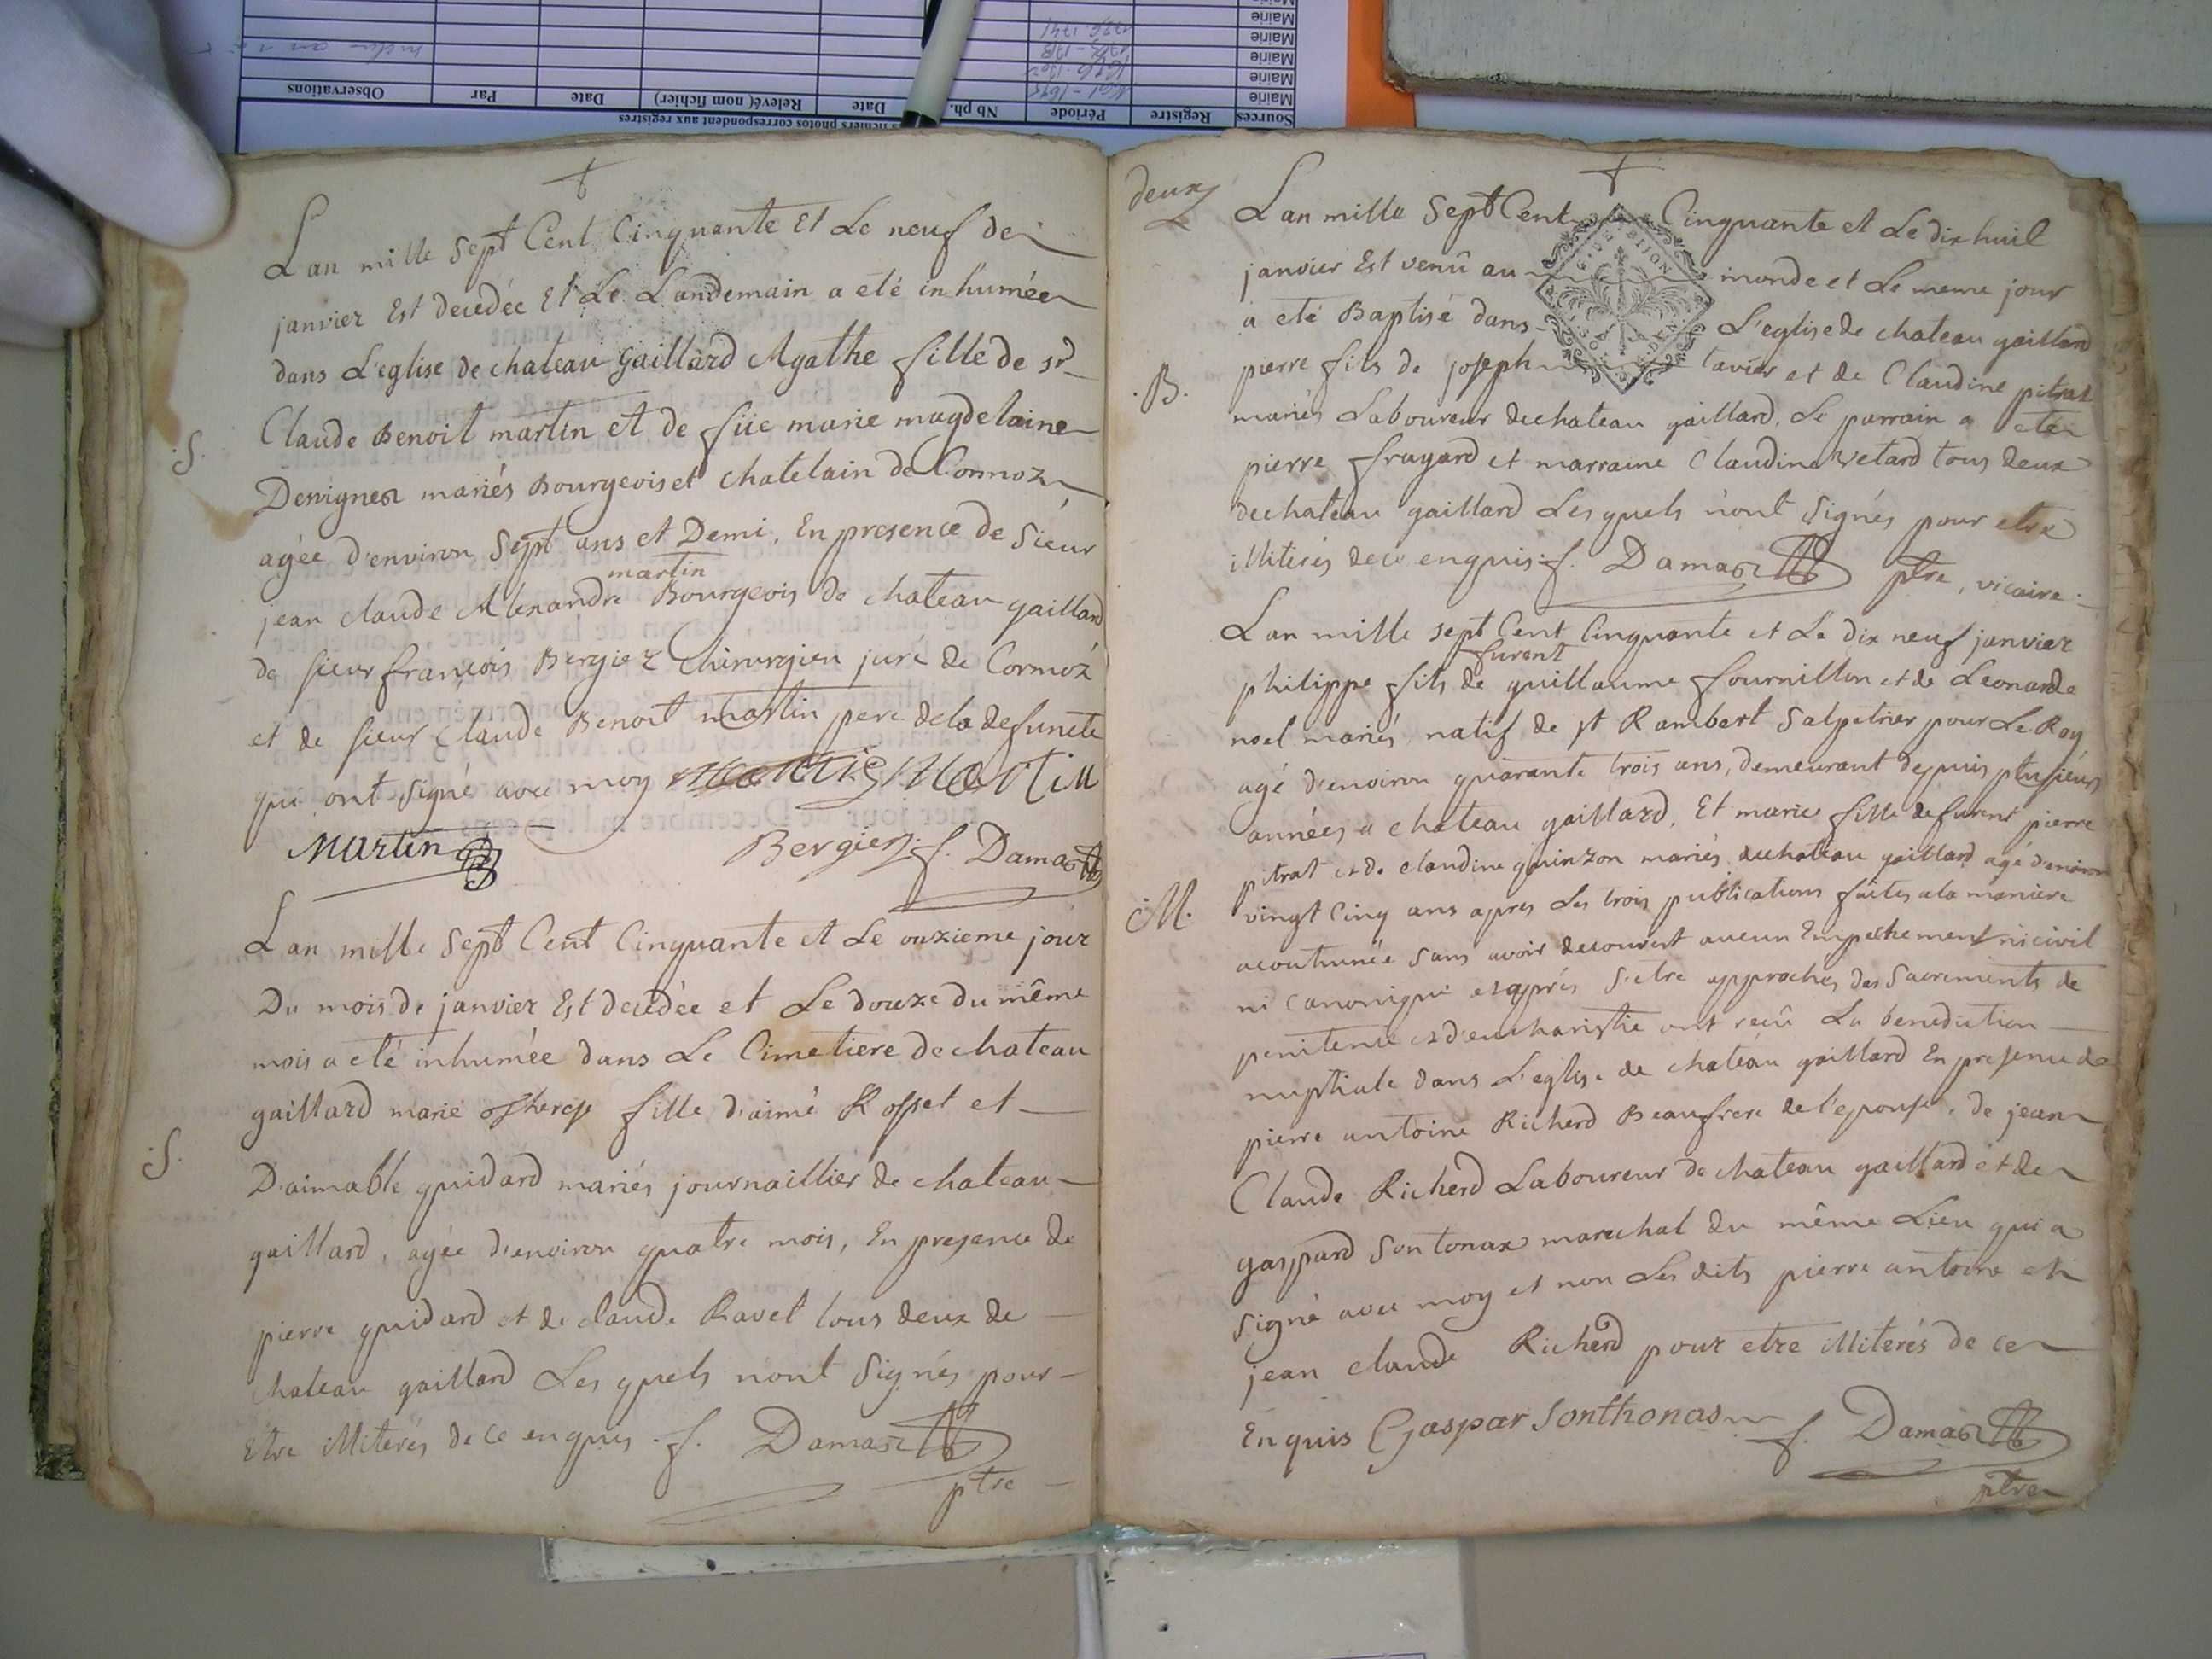 Sources Registre Période Nb ph. Date Relevé (nom fichier) Date Par Observations
Mairie
Mairie
Mairie
Mairie
Mairie
†
Lan mille Sept Cent Cinquante Et Le neuf de
janvier Est decedée Et Le Landemain a eté inhumée
dans L'eglise de chateau Gaillard Agathe fille de sr
Claude Benoit martin et de marie magdelaine
mariés Bourgeois et chatelain de Cormoz
S.
agée d'environ Sept ans et Demi, En presence de Sieur
martin
jean claude Alexandre Bourgeois de chateau gaillard
de sieur françois Bergier Chirurgien juré de Cormoz
et de sieur Claude Benoit martin pere dela defuncte
qui ont signé avec moy Martin
Martin Bergier f. Damas
Lan mille Sept Cent Cinquante et Le onzieme jour
Du mois de janvier Est decedée et Le douze du même
mois a eté inhumée dans Le Cimetiere de chateau
gaillard marie therese fille d'aimé Rosset et
S.
D'aimable guidard mariés journaillier de chateau
gaillard, agée d'environ quatre mois, En presence de
pierre guidard et de claude Ravet tous deux de
chateau gaillard Les quels n'ont Signés pour
Etre illiterés de ce enquis f. Damas
ptre
deux
†
Lan mille Sept Cent Cinquante et Le dix huit
janvier Est venû au monde et Le meme jour
a eté Baptisé dans L'eglise de chateau gaillard
pierre fils de joseph tavier et de Claudine pitrat
.B.
mariés Laboureur de chateau gaillard. Le parrain a eté
pierre frayard et marraine Claudine tous deux
de chateau gaillard Les quels n'ont Signés pour etre
illiterés de ce enquis f. Damas ptre, vicaire
Lan mille sept Cent Cinquante et Le dix neuf janvier
furent
philippe fils de guillaume fournillon et de Leonarde
noel mariés natif de st Rambert Salpetrier pour Le Roy
agé d'environ quarante trois ans, demeurant depuis plusieurs
années a chateau gaillard, Et marie fille de furent pierre
pitrat et de claudine guinzon mariés de chateau gaillard agé d'environ
.M.
vingt Cinq ans apres Les trois publications faites a la maniere
acoutumée sans avoir decouvert aucun Empechement ni civil
ni Canonique et apprés s'etre approchés des Sacrements de
penitence et d'eucharistie ont reçû La benediction
nuptiale dans L'eglise de chateau gaillard En presence de
pierre antoine Richerd Beaufrere de l'epouse, de jean
Claude Richerd Laboureur de chateau gaillard et de
gaspard Sontonax marechal du même Lieu qui a
signé avec moy et non Les dits pierre antoine et
jean claude Richerd pour etre illiterés de ce
Enquis Gaspar Sonthonas f. Damas
ptre